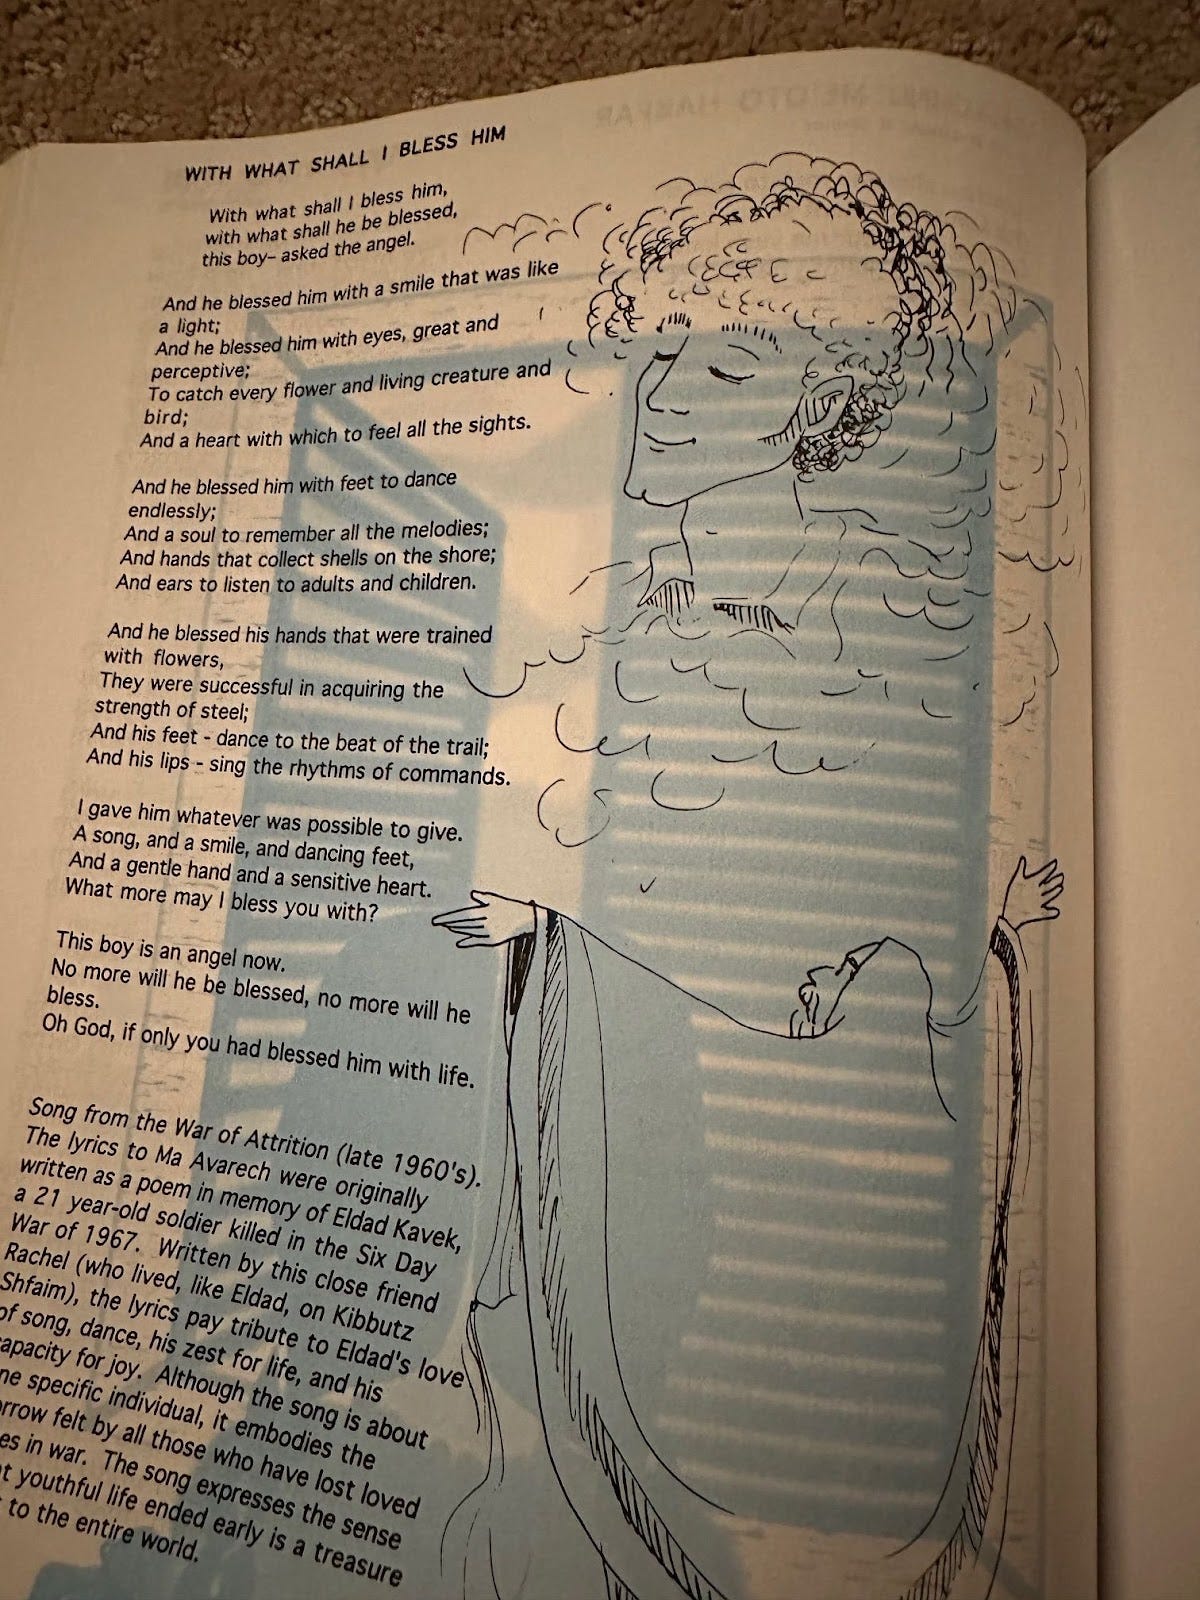 WITH WHAT SHALL I BLESS HIM
With what shall I bless him,
with what shall he be blessed,
this boy– asked the angel.
And he blessed him with a smile that was like
a light;
And he blessed him with eyes, great and
perceptive;
To catch every flower and living creature and
bird;
And a heart with which to feel all the sights.
And he blessed him with feet to dance
endlessly;
And a soul to remember all the melodies;
And hands that collect shells on the shore;
And ears to listen to adults and children.
And he blessed his hands that were trained
with flowers,
They were successful in acquiring the
strength of steel;
And his feet - dance to the beat of the trail;
And his lips - sing the rhythms of commands.
I gave him whatever was possible to give.
A song, and a smile, and dancing feet,
And a gentle hand and a sensitive heart.
What more may I bless you with?
This boy is an angel now.
No more will he be blessed, no more will he
bless.
Oh God, if only you had blessed him with life.
Song from the War of Attrition (late 1960's).
The lyrics to Ma Avarech were originally
written as a poem in memory of Eldad Kavek,
a 21 year-old soldier killed in the Six Day
War of 1967. Written by this close friend
Rachel (who lived, like Eldad, on Kibbutz
Shfaim), the lyrics pay tribute to Eldad's love
of song, dance, his zest for life, and his
capacity for joy. Although the song is about
specific individual, it embodies the
felt by all those who have lost loved
in war. The song expresses the sense
youthful life ended early is a treasure
to the entire world.